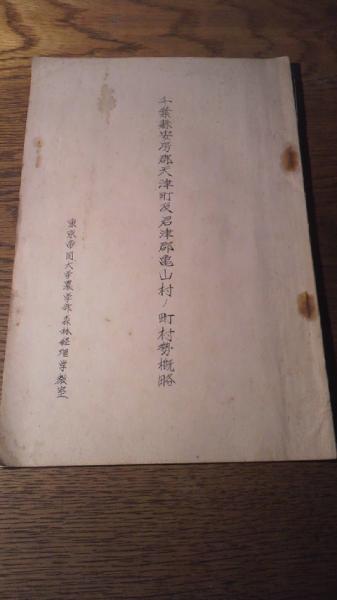 千葉縣安房郡天津町及君津郡亀山村ノ町村勢概略
東京帝国大学農学部森林経理学教室